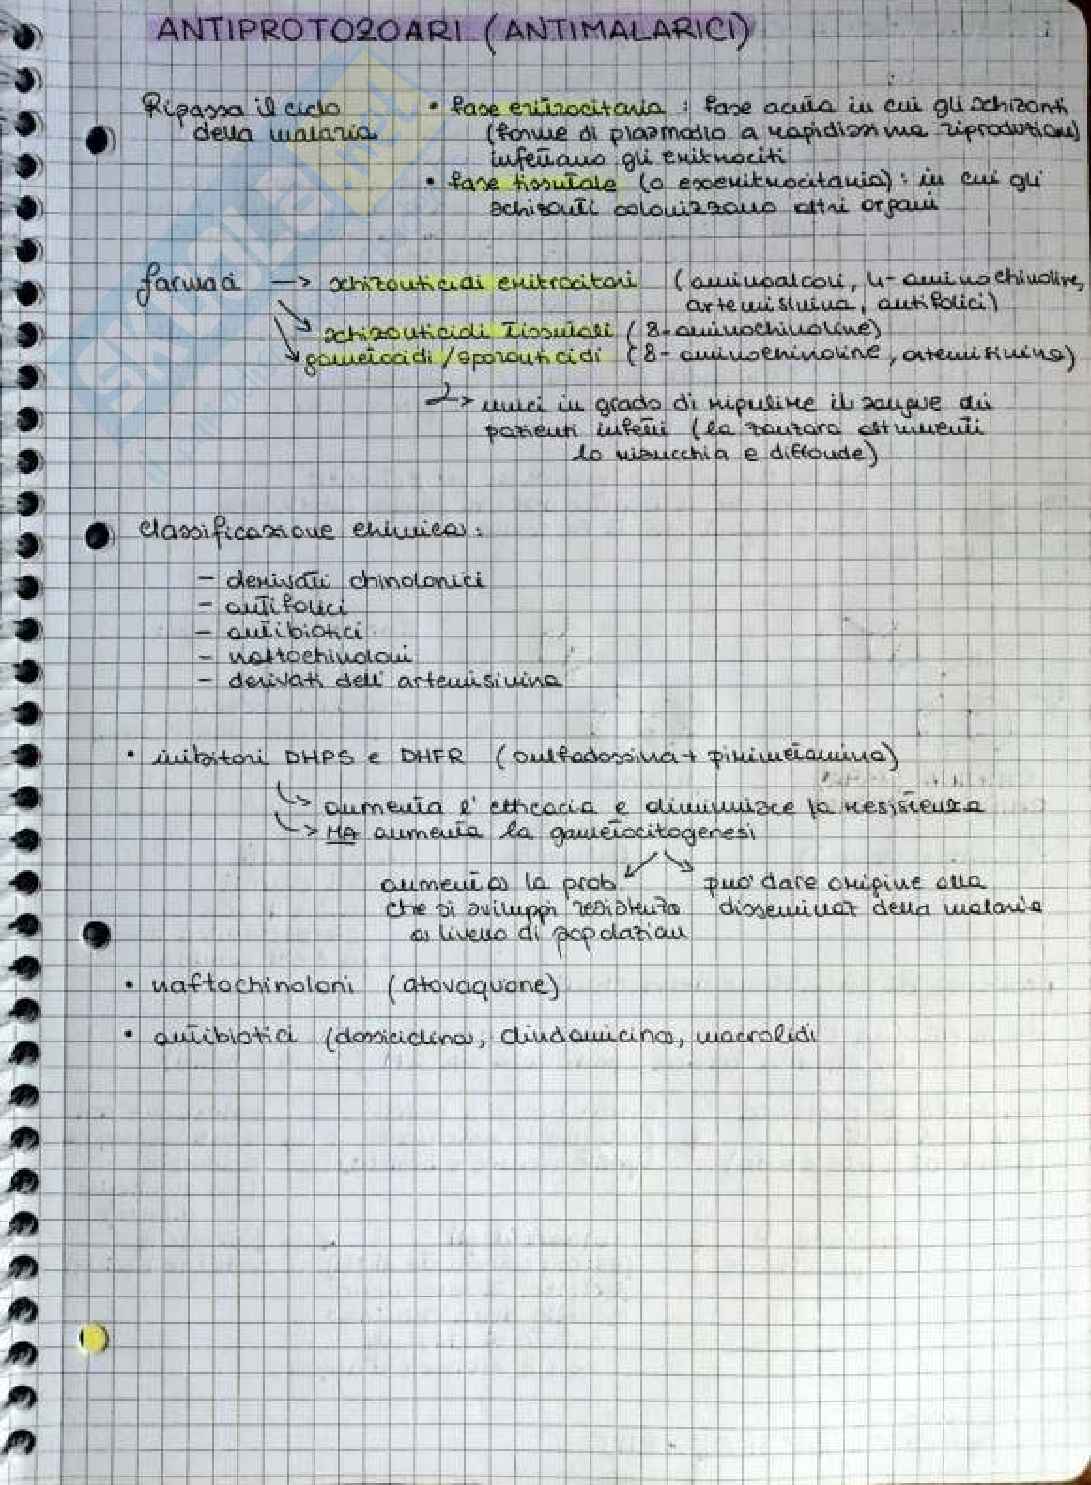 ANTIPROTOZOARI (ANTIMALARICI)
Ripassa il ciclo
della malaria
• fase eritrocitaria : fase acuta in cui gli schizonti
(forme di plasmodio a rapidissima riproduzione)
infettano gli eritrociti
• fase tissutale (o esoeritrocitaria) : in cui gli
schizonti colonizzano altri organi
farmaci → schizonticidi eritrocitari (aminoalcoli, 4-aminochinoline,
artemisinina, antifolici)
schizonticidi tissutali (8-aminochinoline)
gametocidi/sporonticidi (8-aminochinoline, artemisinina)
→ unici in grado di ripulire il sangue dei
pazienti infetti (la zanzara altrimenti
lo risucchia e diffonde)
Classificazione chimica :
- derivati chinolonici
- antifolici
- antibiotici
- naftochinoloni
- derivati dell'artemisinina
• inibitori DHPS e DHFR (sulfadossina + pirimetamina)
→ aumenta l'efficacia e diminuisce la resistenza
→ MA aumenta la gametocitogenesi
aumenta la prob
che si sviluppi resistenza
a livello di popolazioni
può dare origine alla
disseminaz della malaria
• naftochinoloni (atovaquone)
• antibiotici (dossiciclina, clindamicina, macrolidi
SKUOLA.net